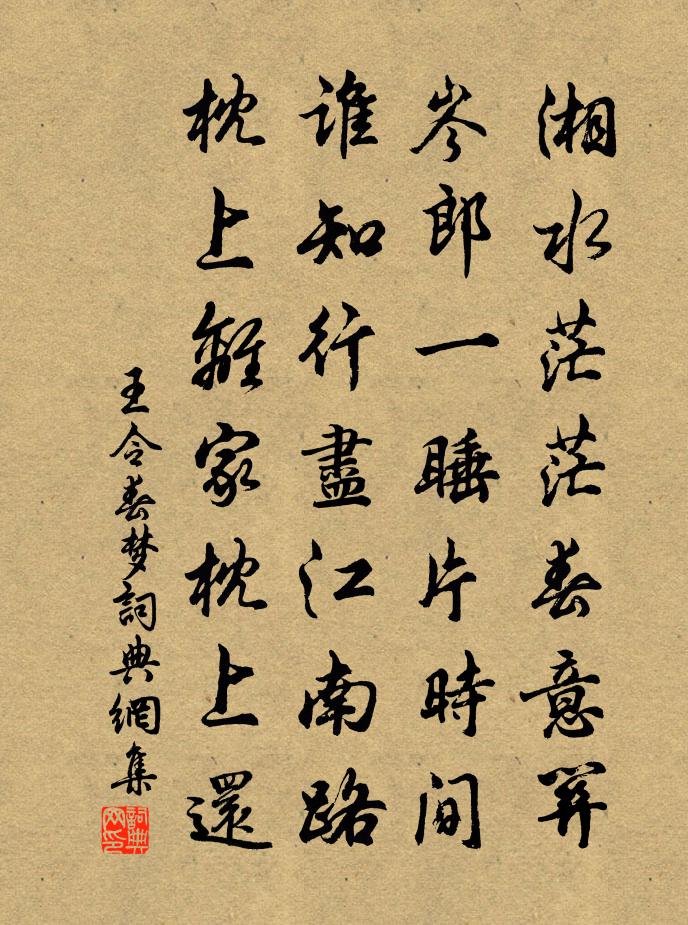 湘水茫茫春意
岑郎一睡片時間
誰知行盡江南路
枕上離家枕上還
王令春梦詞典網集
詞典网印